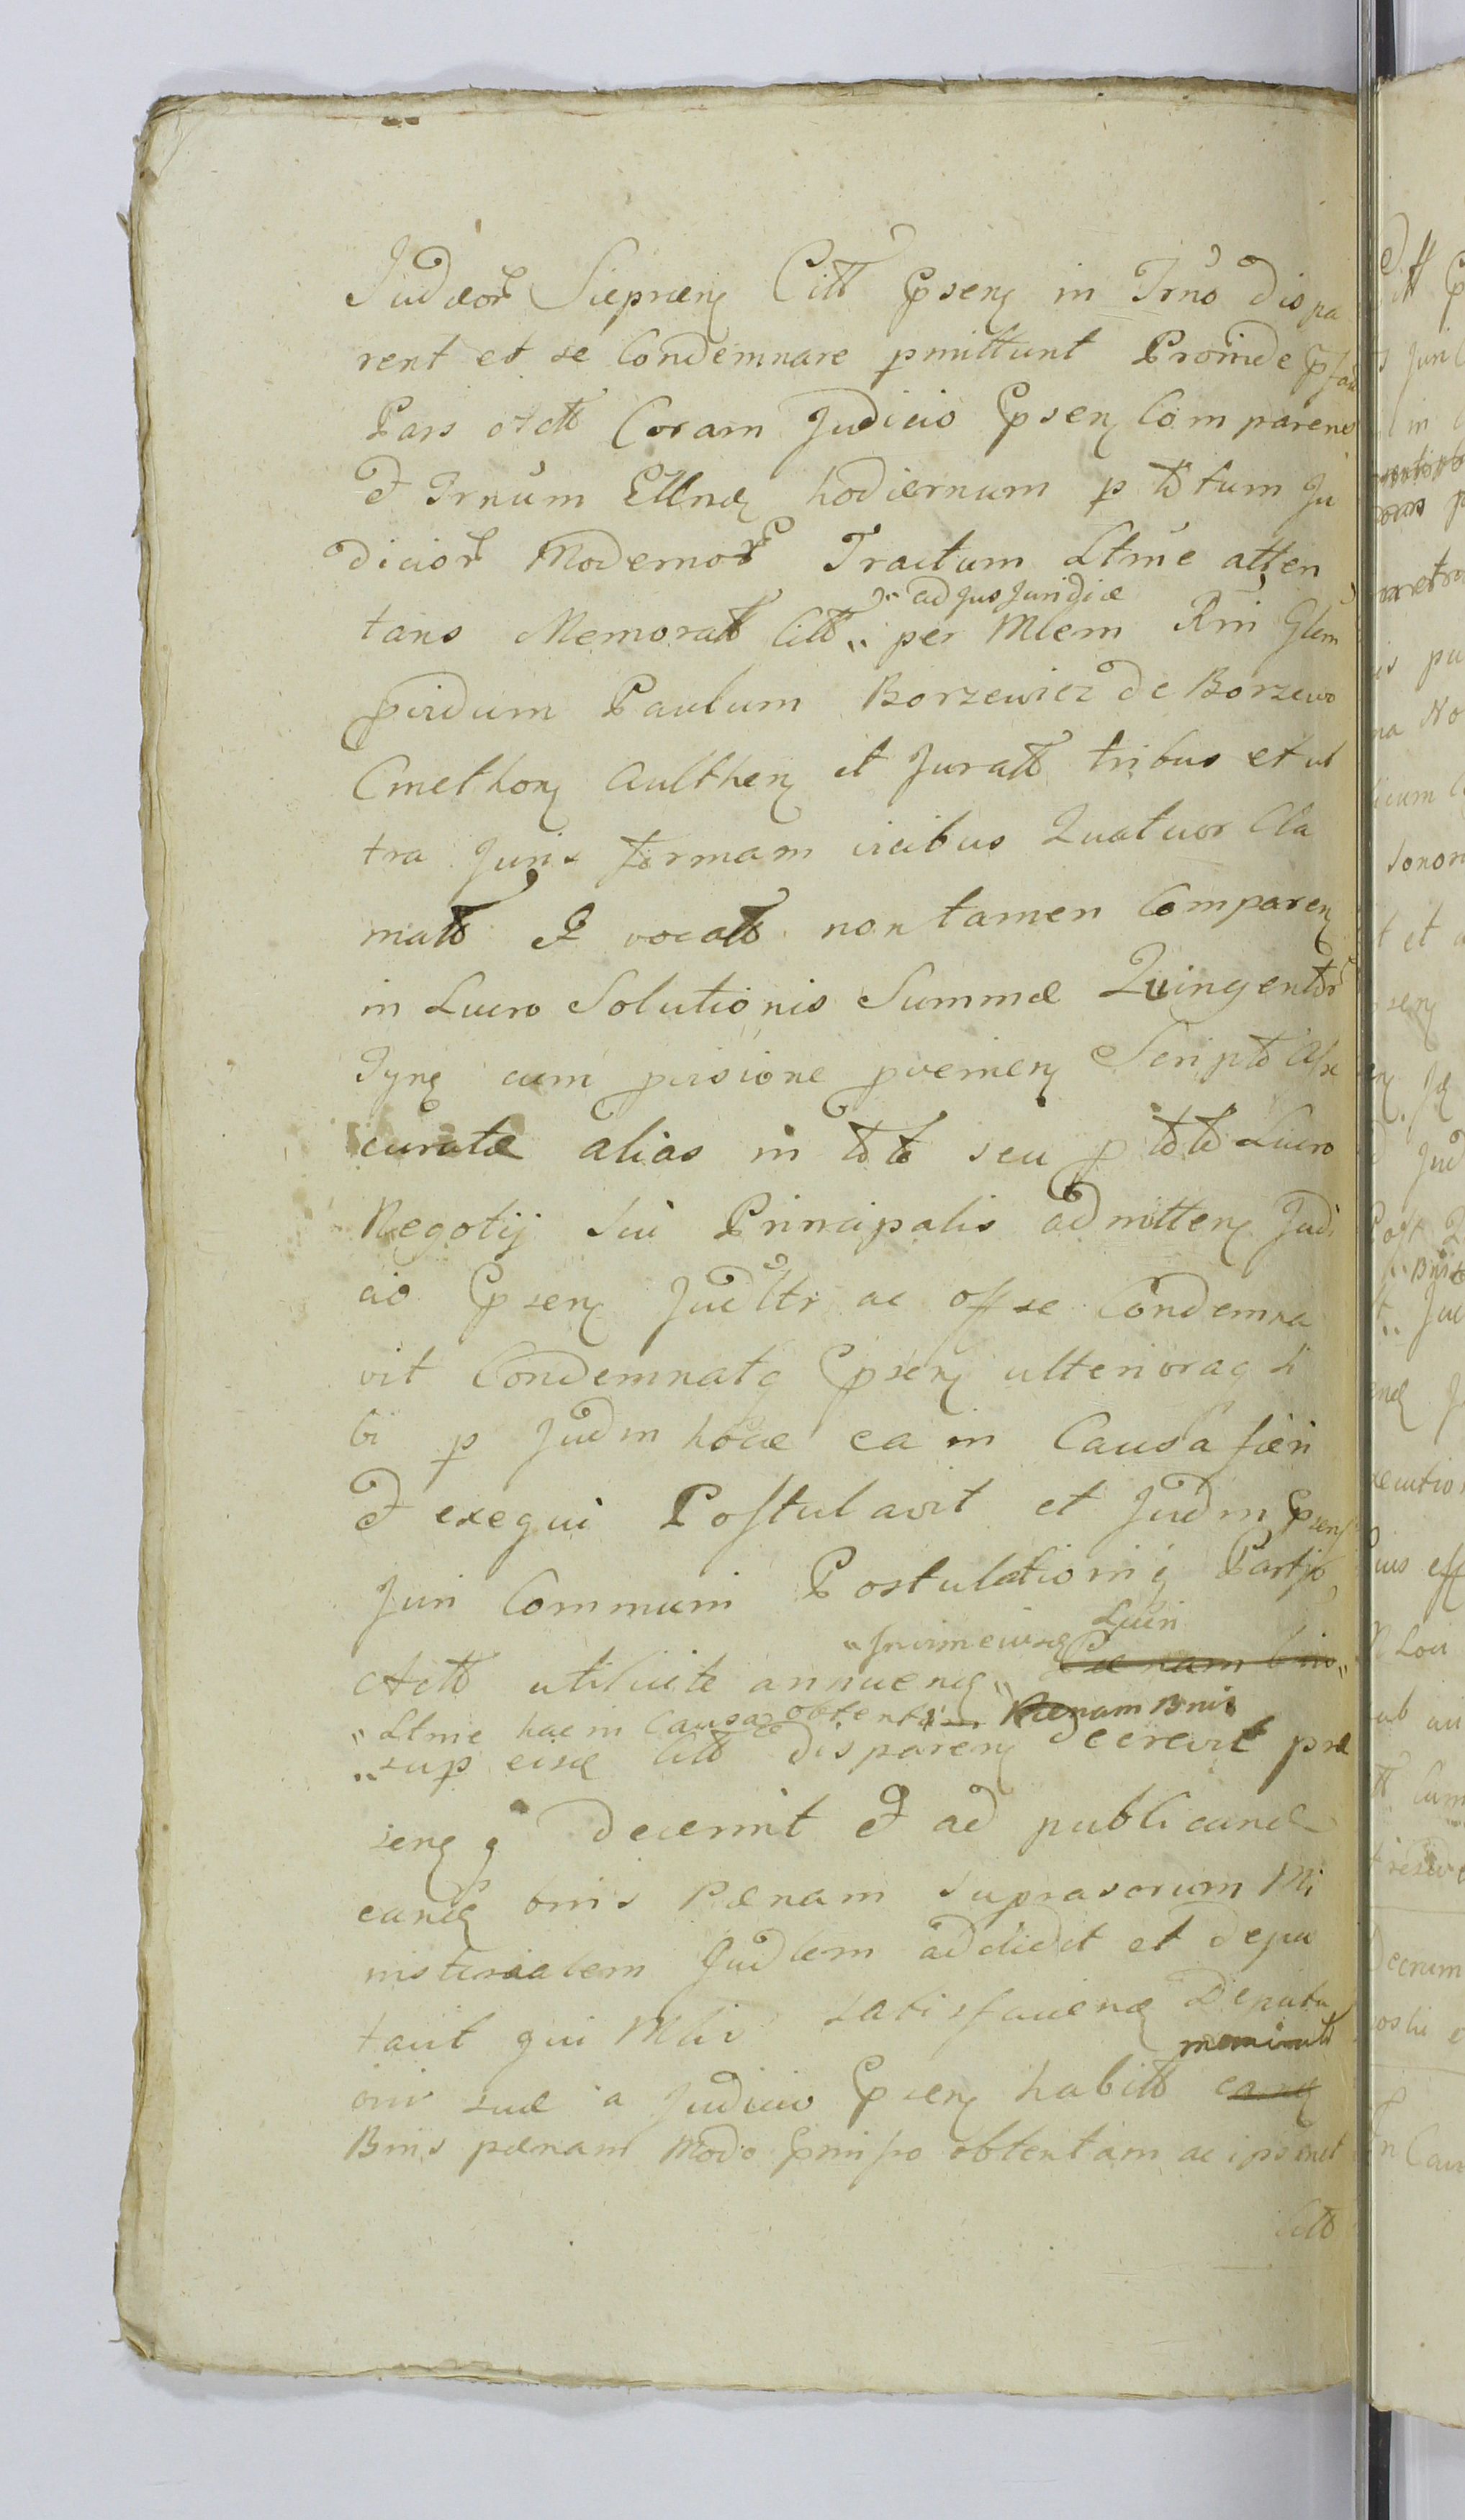 Judæor Siepraen Citt Ppsen in Trno dispa
rent et se Condemnare pmittunt Proinde
Pars Actt Coram Judicio Ppsen Comparens
et Trnum hodiernum p totum Ju
dicior Modernor Tractum Ltme atten
ad Jus Juridice
tans Memoratt Citt per Mlem Rni Glem
pvidum Paulum Borzewicz de Borzewo
Cmethon authen et Juratt tribus et ul
tra Juris formam vicibus Quatuor Cla
matt et vocatt non tamen Comparen
in Lucro Solutionis Summæ Quingentor
Tyn cum pvisione pvenien Scripto Asse
curatæ alias in toto seu p toto Lucro
Negotij sui Principalis admitten Judi
cio Ppsen Judltr ac off se Condemna
vit Condemnatq Ppsen ulterioraq si
bi p Judm hocce ea in Causa fieri
et exequi Postulavit et Judm Ppsen
Juri Communi Postulationiq Partis
Lucri
Actt utiliute annuen Pænam
Ltme hac in Causa obtent Pænam Bnis
sup eisd Citt disparen decrevit præ
senq decernit et ad publicand
eand bnis Pænam suprasorum Mi
nisterialem Judlem addidit et depu
tavit qui Mlis satisfaciend Deputa
oni suæ a Judicio Ppsen habitt
Bnis pænam modo pmisso obtentam ac ipsmet
Citt